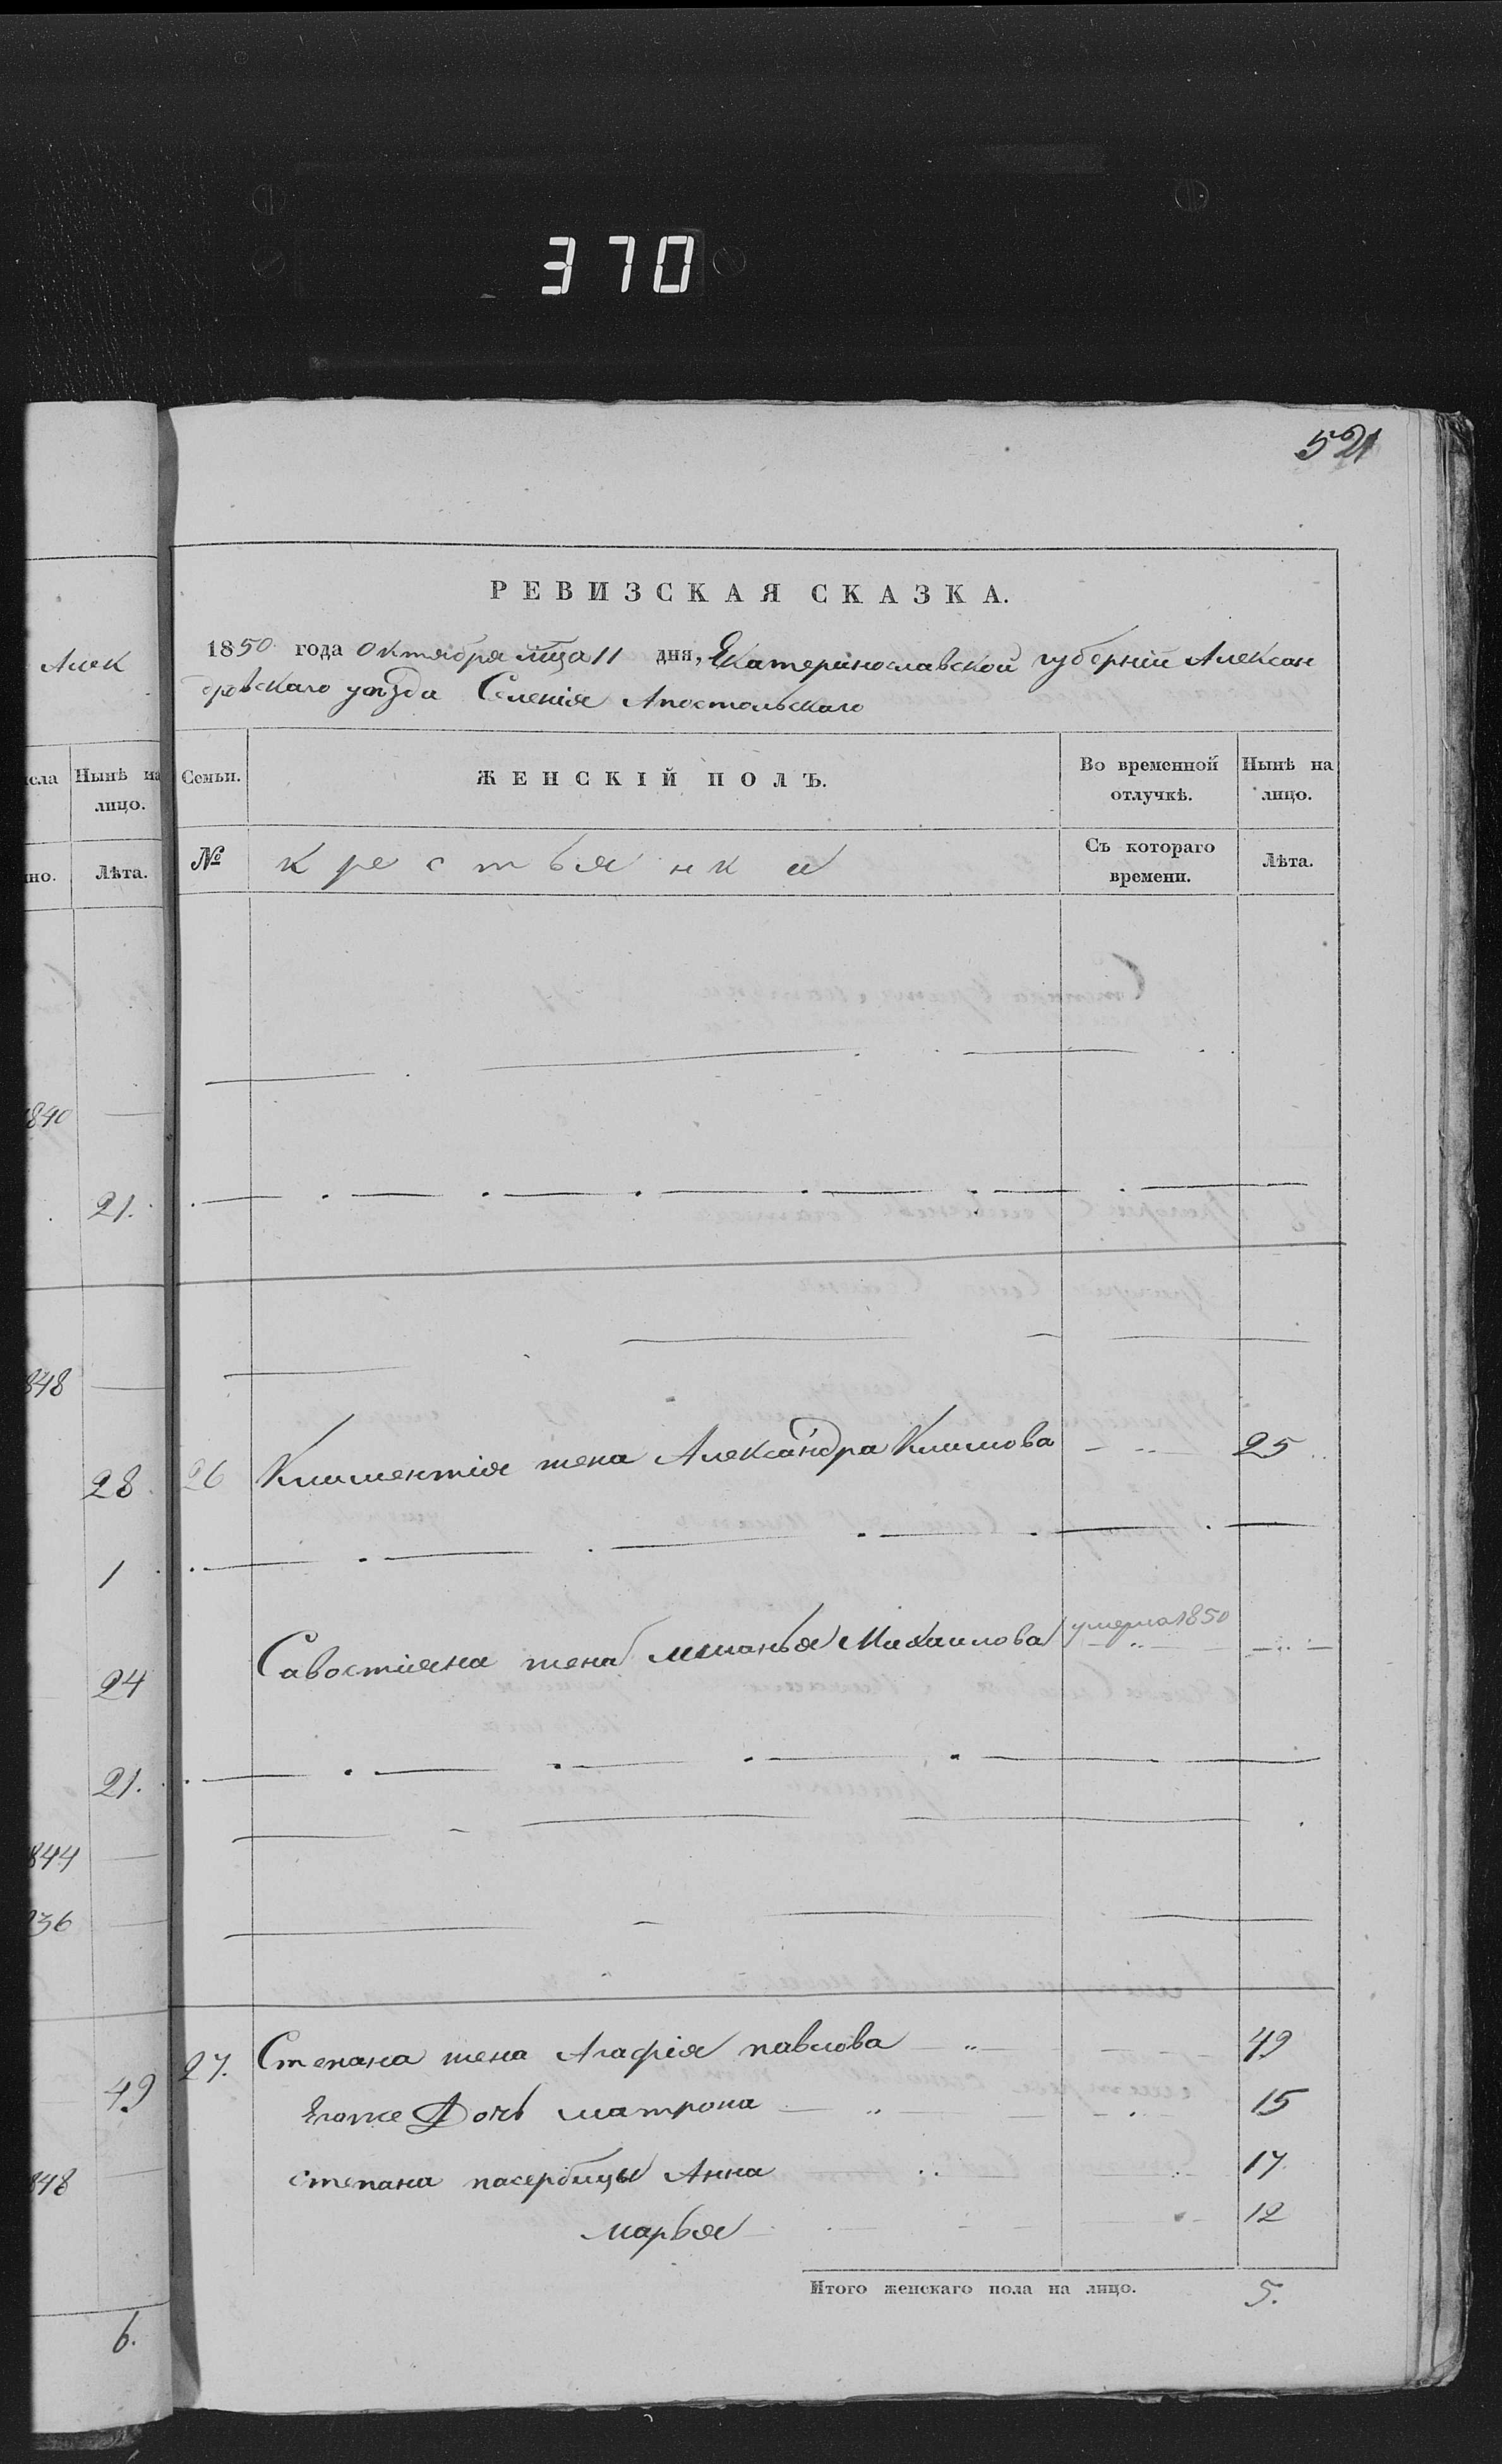 370
521
РЕВИЗСКАЯ СКАЗКА.
1850 года Октября мца 11 дня, Екатеринославской губерніи Алексан
дровскаго уѣзда Селенія Апостольскаго
Алек
Нынѣ на
лицо.
Лѣта.
Семьи.
ЖЕНСКІЙ ПОЛЪ.
Во временной
отлучкѣ.
Нынѣ на
лицо.
№
крестьянки
Съ котораго
времени.
Лѣта.
840
21.
848
28
26 Климентія жена Александра Климова 25
1
Савостіяна жена Меланья Михаилова умерла 1850
24
21.
844
836
27. Степана жена Агафія павлова 49
49
Егоже Дочь матрона 15
степана пасербицы Анна 17
848
марья 12
Итого женскаго пола на лицо. 5.
6.